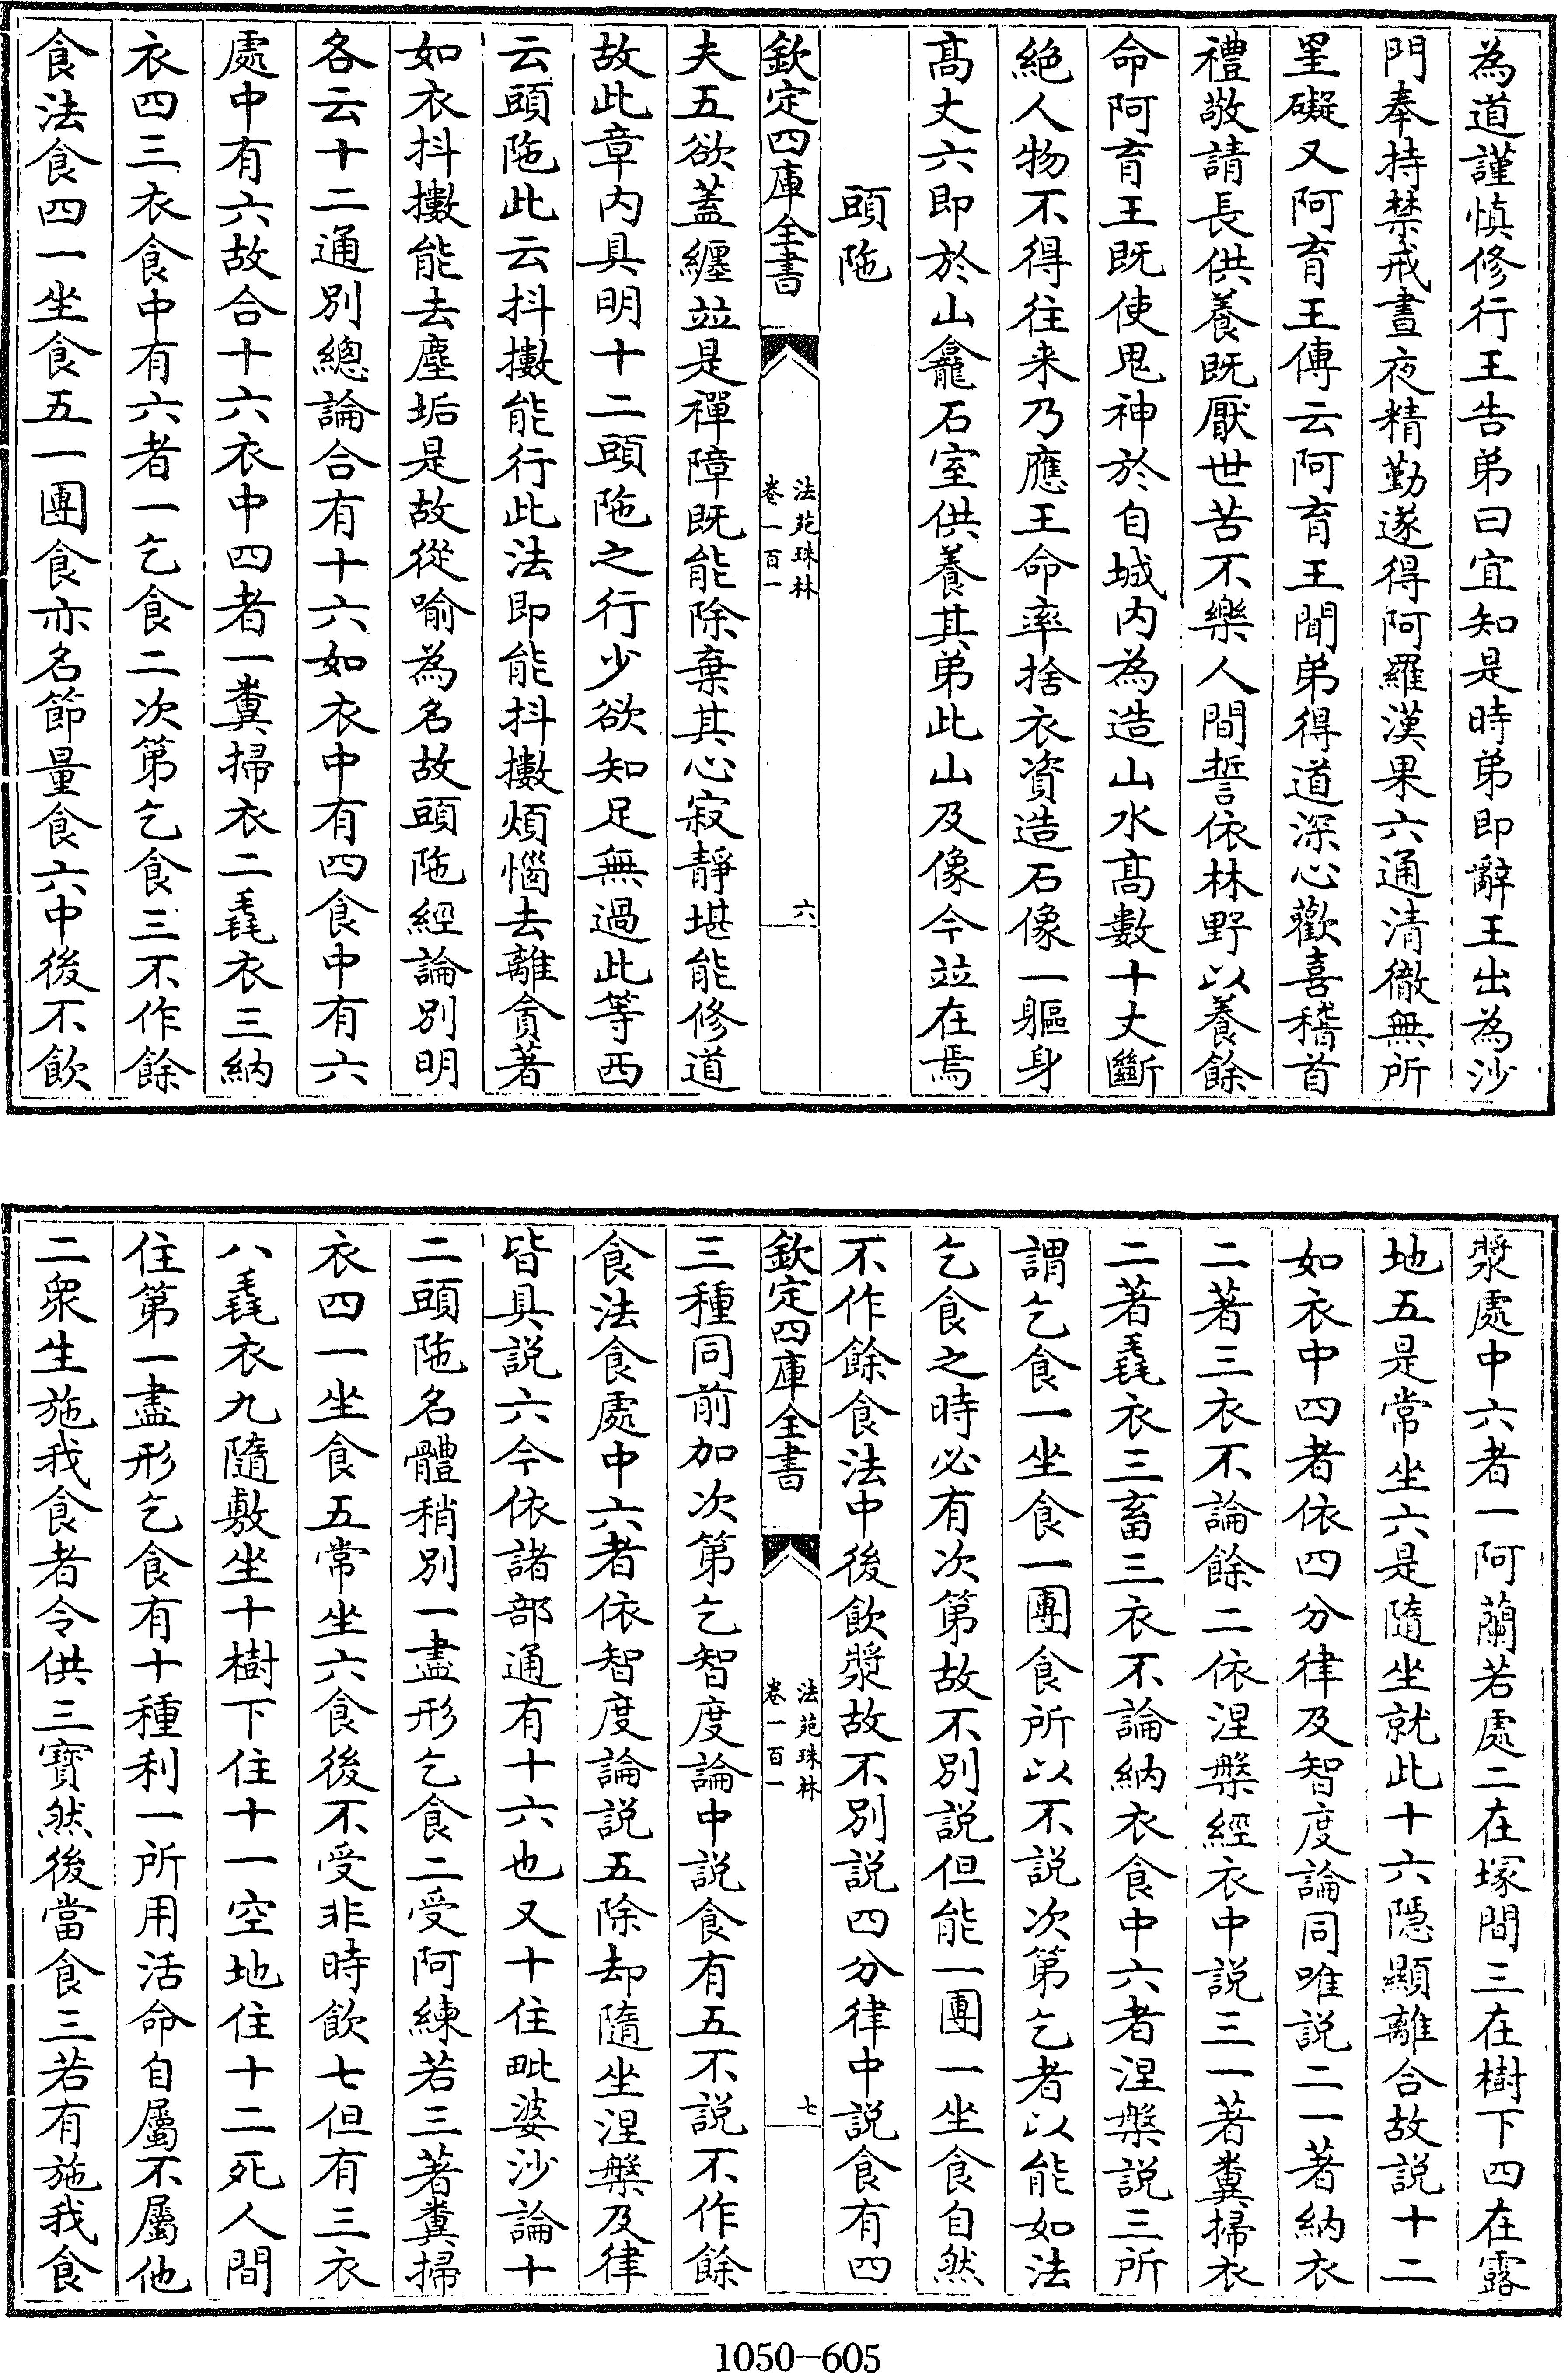 為道謹慎修行王告弟曰宜知是時弟即辭王出為沙
門奉持禁戒晝夜精勤遂得阿羅漢果六通清徹無所
罣礙又阿育王傳云阿育王聞弟得道深心歡喜稽首
禮敬請長供養既厭世苦不樂人間誓依林野以養餘
命阿育王既使鬼神於自城内為造山水高數十丈斷
絶人物不得往来乃應王命率捨衣資造石像一軀身
髙丈六即於山龕石室供養其弟此山及像今並在焉
頭陁
欽定四庫全書
法苑珠林
卷一百一
六
夫五欲蓋纏並是禪障既能除棄其心寂靜堪能修道
故此章内具明十二頭陁之行少欲知足無過此等西
云頭陁此云抖擻能行此法即能抖擻煩惱去離貪著
如衣抖擻能去塵垢是故從喻為名故頭陁經論別明
各云十二通別總論合有十六如衣中有四食中有六
處中有六故合十六衣中四者一糞掃衣二毳衣三納
衣四三衣食中有六者一乞食二次第乞食三不作餘
食法食四一坐食五一團食亦名節量食六中後不飲
漿處中六者一阿蘭若處二在塚間三在樹下四在露
地五是常坐六是隨坐就此十六隱顯離合故説十二
如衣中四者依四分律及智度論同唯説二一著納衣
二著三衣不論餘二依涅槃經衣中説三一著糞掃衣
二著毳衣三畜三衣不論納衣食中六者涅槃説三所
謂乞食一坐食一團食所以不説次第乞者以能如法
乞食之時必有次第故不別説但能一團一坐食自然
不作餘食法中後飲漿故不別説四分律中説食有四
欽定四庫全書
法苑珠林
卷一百一
七
三種同前加次第乞智度論中説食有五不説不作餘
食法食處中六者依智度論説五除却隨坐涅槃及律
皆具説六今依諸部通有十六也又十住毗婆沙論十
二頭陁名體稍別一盡形乞食二受阿練若三著糞掃
衣四一坐食五常坐六食後不受非時飲七但有三衣
八毳衣九隨敷坐十樹下住十一空地住十二死人間
住第一盡形乞食有十種利一所用活命自屬不屬他
二衆生施我食者令供三寶然後當食三若有施我食
1050-605